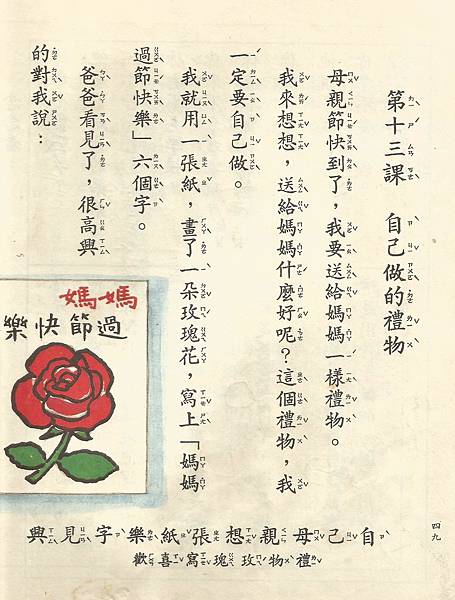 第十三課　自己做的禮物
母親節快到了，我要送給媽媽一樣禮物。
我來想想，送給媽媽什麼好呢？這個禮物，我
一定要自己做。
我就用一張紙，畫了一朵玫瑰花，寫上「媽媽
過節快樂」六個字。
爸爸看見了，很高興
的對我說：
媽媽
過節快樂
自己母親想張紙樂字見興
禮物玫瑰寫喜歡
四九